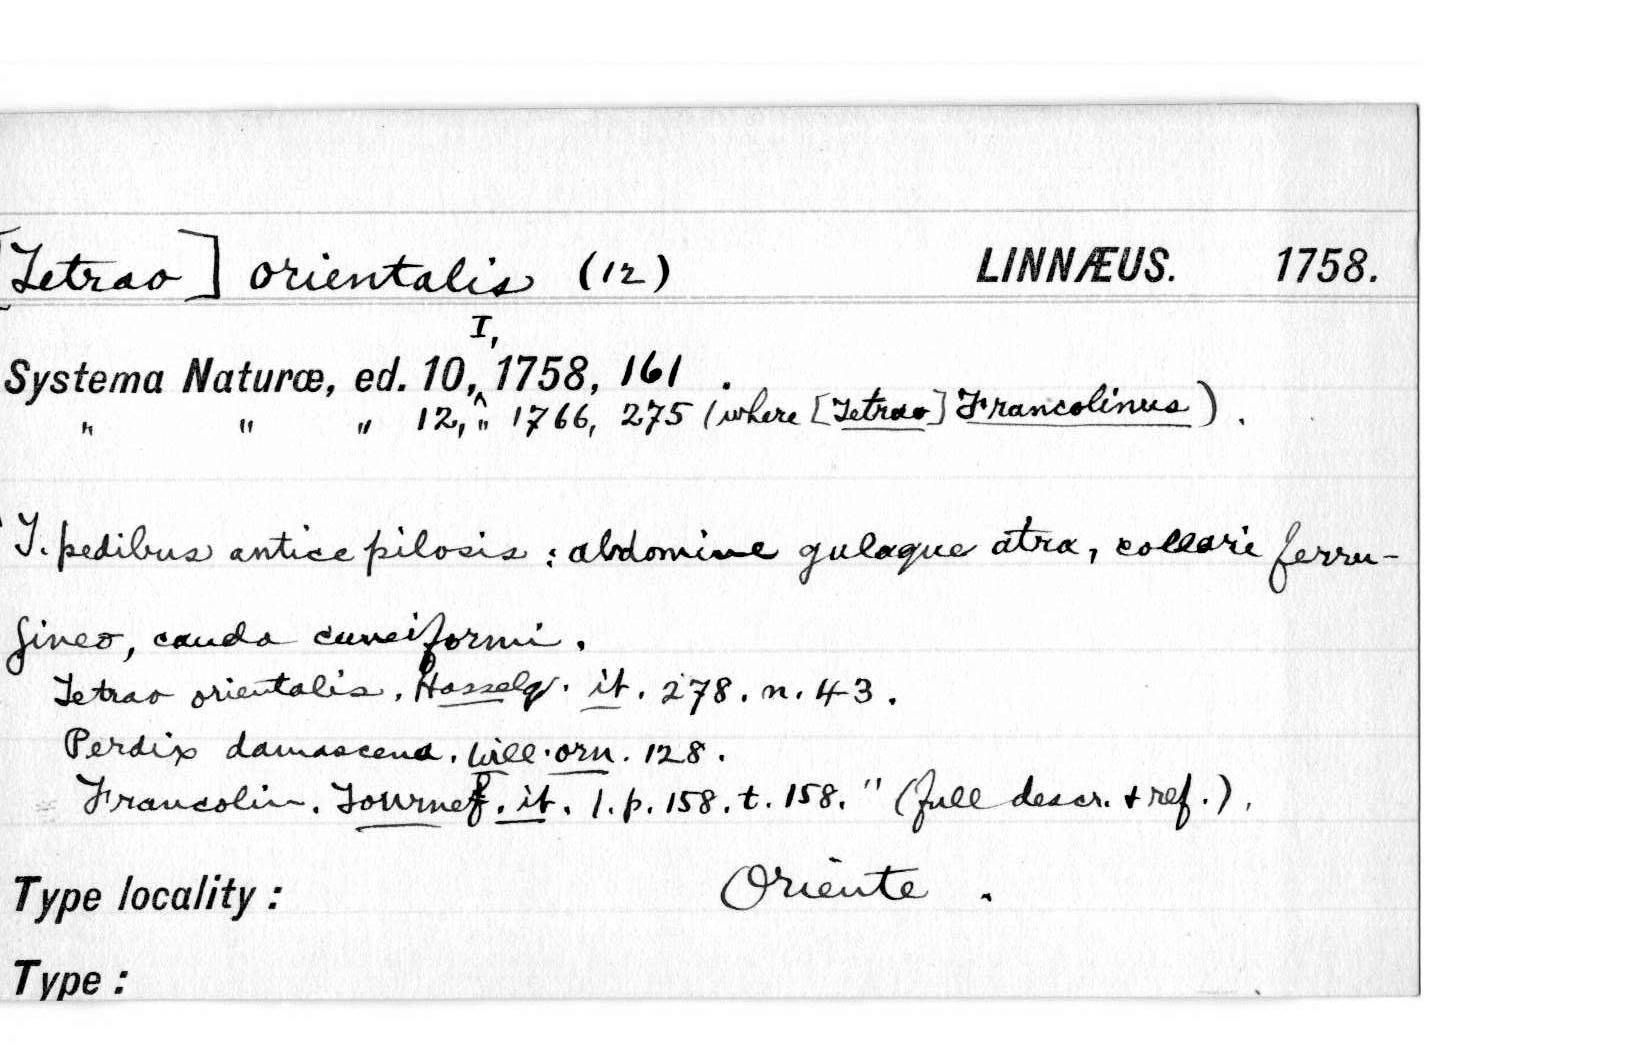 [Tetrao] orientalis (12) LINNÆUS. 1758.
I,
Systema Naturæ, ed. 10,^ 1758, 161 .
" " " 12, " 1766, 275 (where [Tetrao] Francolinus) .
T. pedibus antice pilosis : abdomine gulaque atra, collari ferru-
gineo, cauda cuneiformi .
Tetrao orientalis . Hasselq . it . 278 . n . 43 .
Perdix damascena . Will . orn . 128 .
Francolin . Tournef . it . 1 . p . 158 . t . 158 . " (full descr . + ref .) .
Type locality : Oriente .
Type :